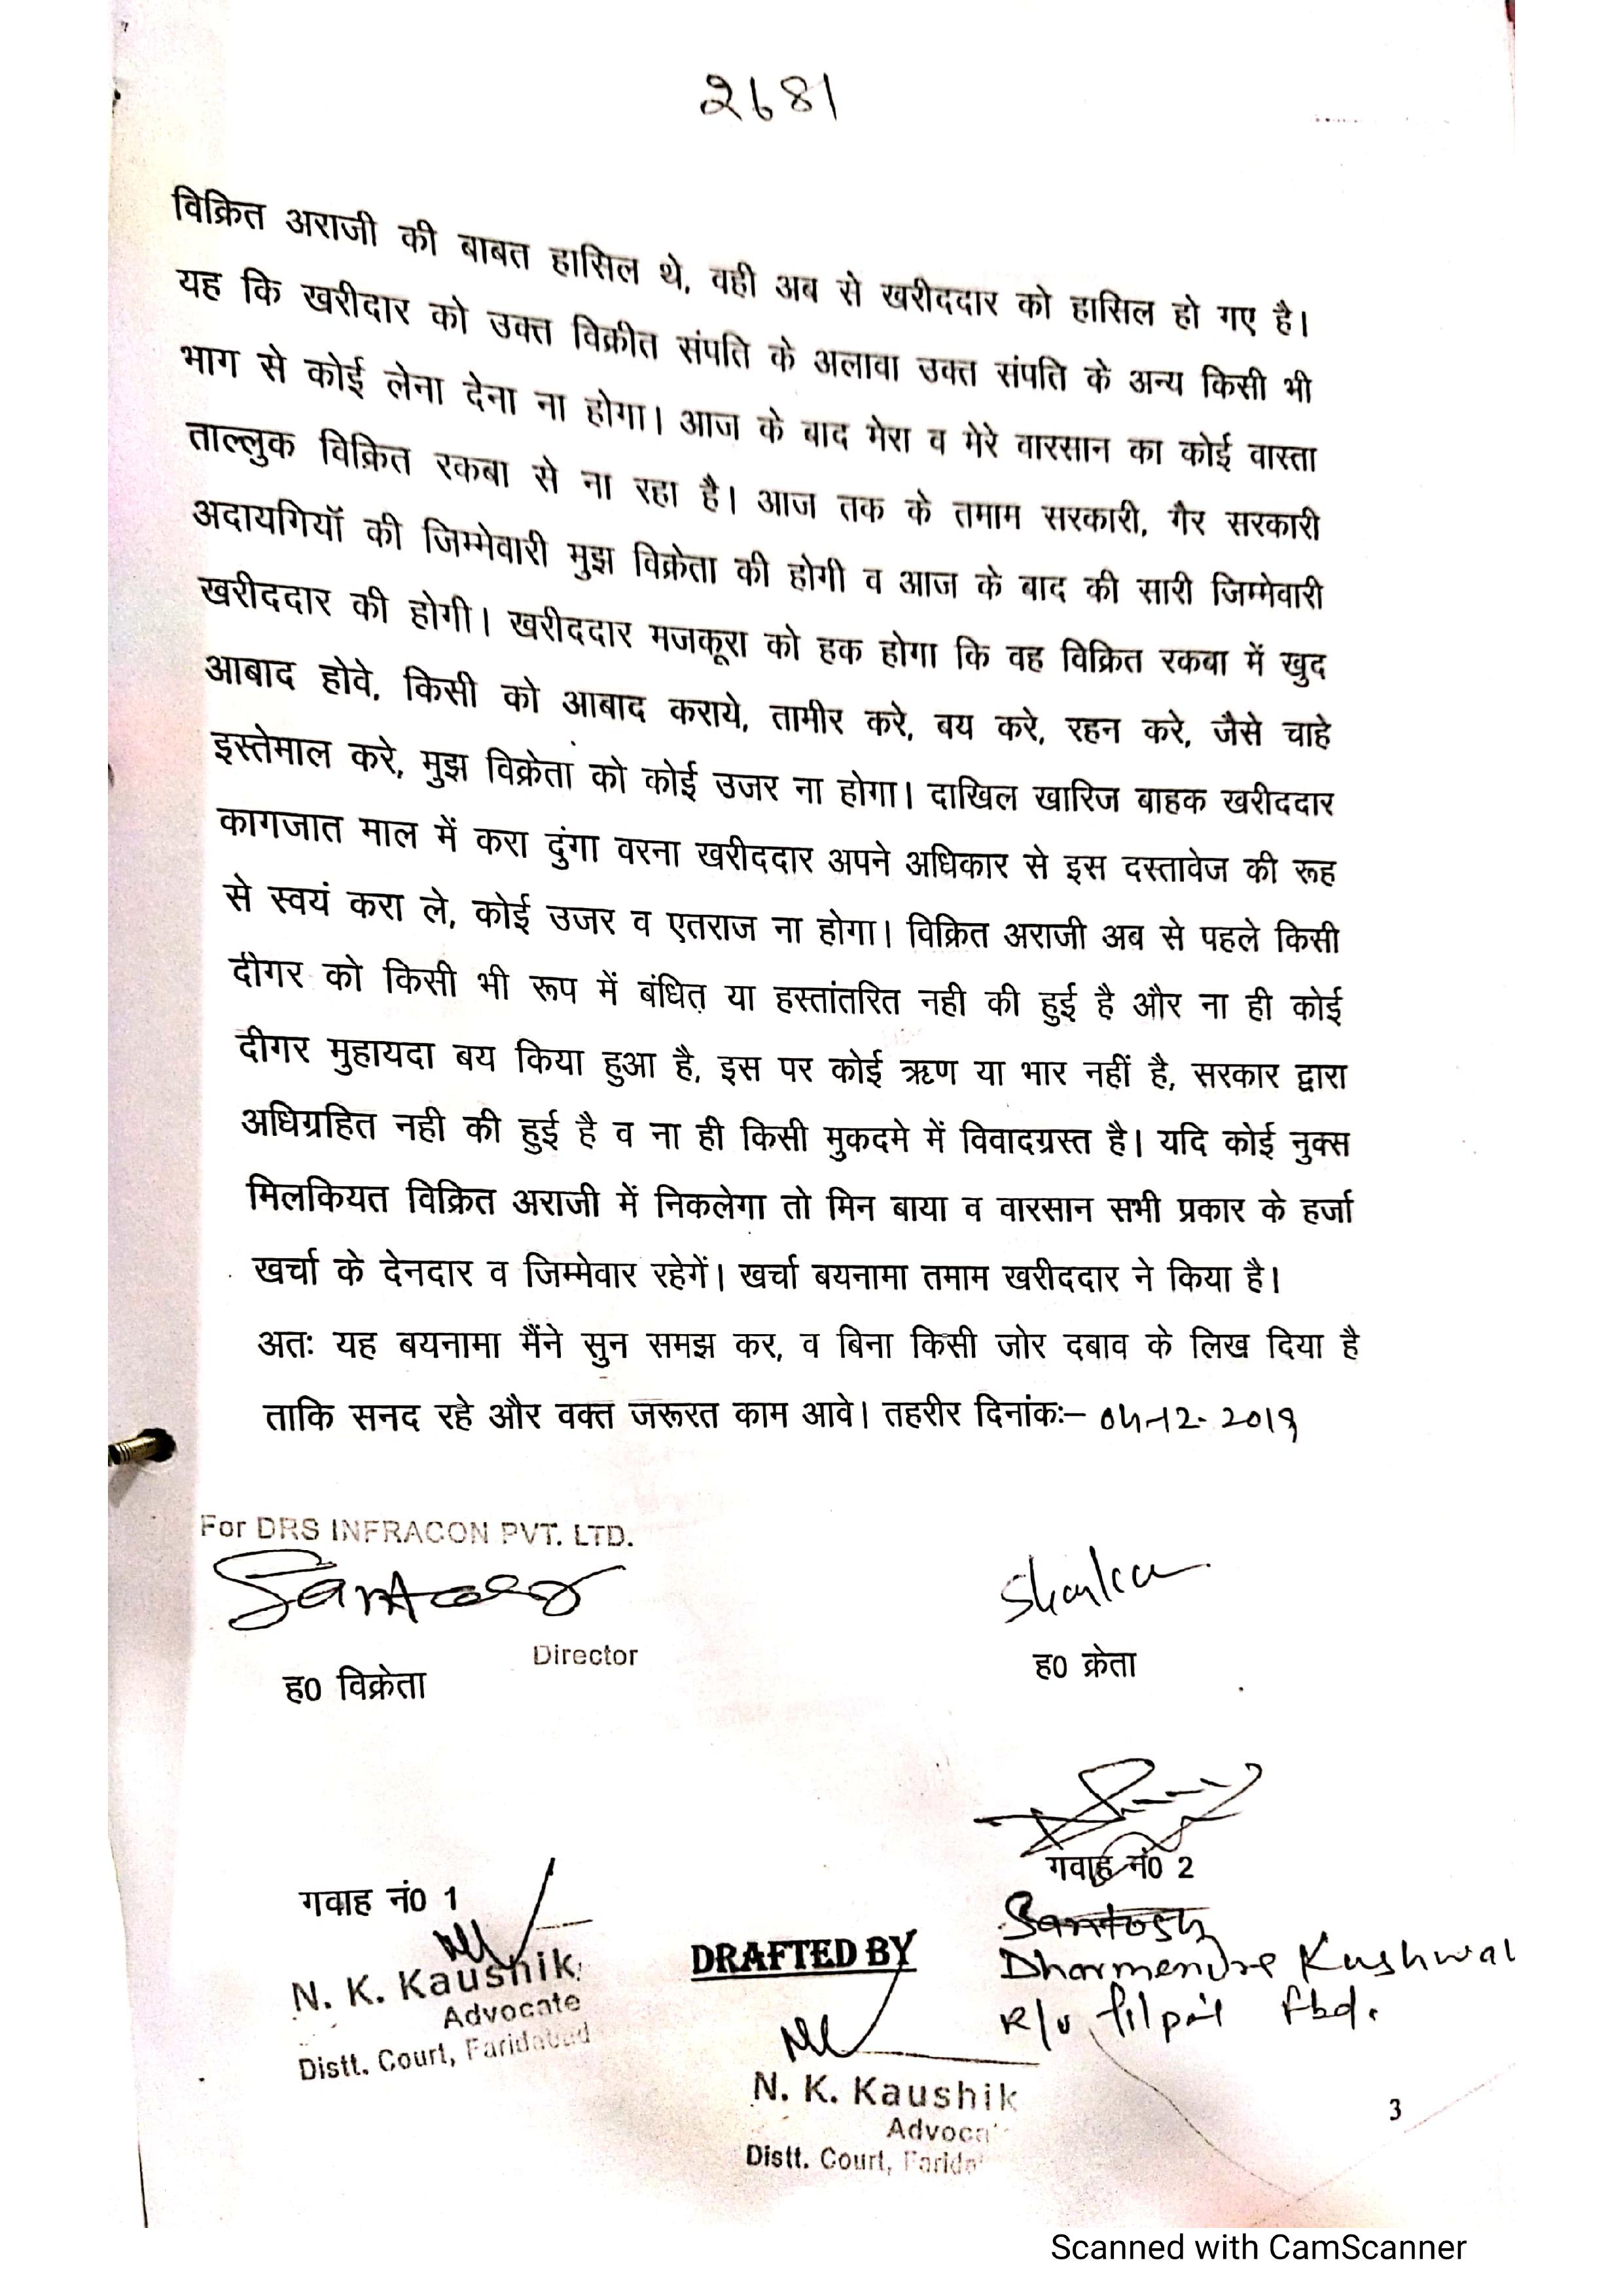 2681
विक्रित अराजी की बाबत हासिल थे, वही अब से खरीददार को हासिल हो गए है।
यह कि खरीदार को उक्त विक्रीत संपति के अलावा उक्त संपति के अन्य किसी भी
भाग से कोई लेना देना ना होगा। आज के बाद मेरा व मेरे वारसान का कोई वास्ता
ताल्लुक विक्रित रकबा से ना रहा है। आज तक के तमाम सरकारी, गैर सरकारी
अदायगियॉ की जिम्मेवारी मुझ विक्रेता की होगी व आज के बाद की सारी जिम्मेवारी
खरीददार की होगी। खरीददार मजकूरा को हक होगा कि वह विक्रित रकबा में खुद
आबाद होवे, किसी को आबाद कराये, तामीर करे, बय करे, रहन करे, जैसे चाहे
इस्तेमाल करे, मुझ विक्रेता को कोई उजर ना होगा। दाखिल खारिज बाहक खरीददार
कागजात माल में करा दुंगा वरना खरीददार अपने अधिकार से इस दस्तावेज की रूह
से स्वयं करा ले, कोई उजर व एतराज ना होगा। विक्रित अराजी अब से पहले किसी
दीगर को किसी भी रूप में बंधित या हस्तांतरित नही की हुई है और ना ही कोई
दीगर मुहायदा बय किया हुआ है, इस पर कोई ऋण या भार नहीं है, सरकार द्वारा
अधिग्रहित नही की हुई है व ना ही किसी मुकदमे में विवादग्रस्त है। यदि कोई नुक्स
मिलकियत विक्रित अराजी में निकलेगा तो मिन बाया व वारसान सभी प्रकार के हर्जा
खर्चा के देनदार व जिम्मेवार रहेगें। खर्चा बयनामा तमाम खरीददार ने किया है।
अतः यह बयनामा मैंने सुन समझ कर, व बिना किसी जोर दबाव के लिख दिया है
ताकि सनद रहे और वक्त जरूरत काम आवे। तहरीर दिनांकः– 04-12-2019
For DRS INFRACON PVT. LTD.
Director
ह0 विक्रेता
ह0 क्रेता
गवाह नं0 1
गवाह नं0 2
N. K. Kaushik
Advocate
Distt. Court, Faridabad
Santosh
Dharmendre Kushwal
R/o Pilpit Fbd.
DRAFTED BY
N. K. Kaushik
Advoca
Distt. Court, Farida
3
Scanned with CamScanner